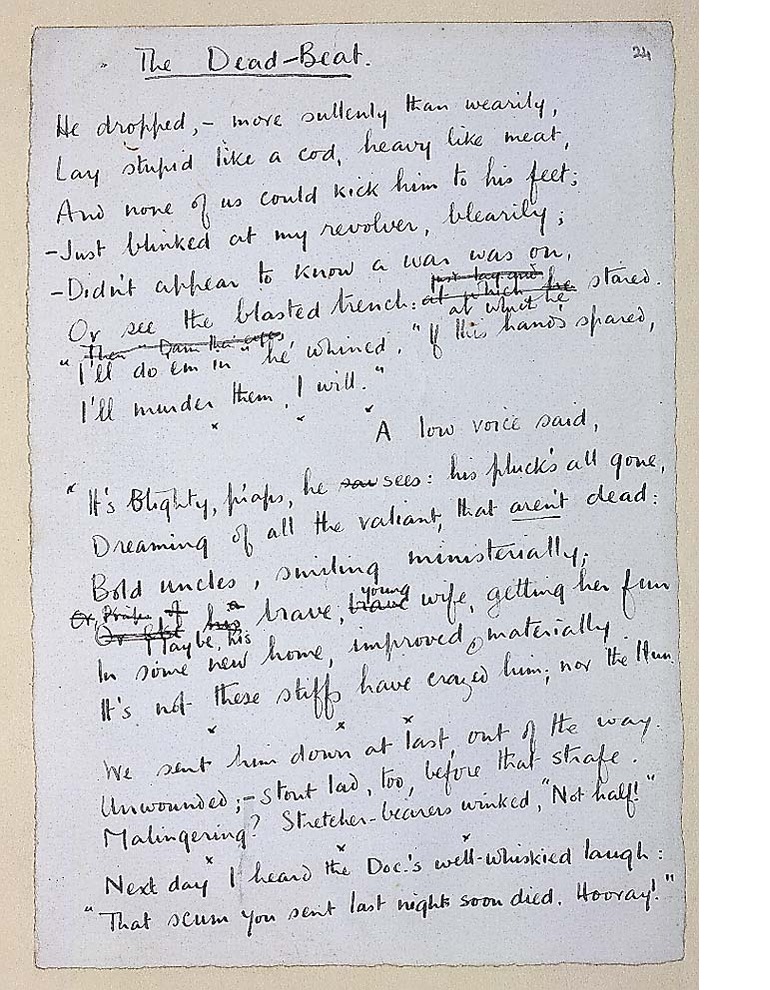 The Dead-Beat.
24
He dropped,- more sullenly than wearily,
Lay stupid like a cod, heavy like meat,
And none of us could kick him to his feet;
-Just blinked at my revolver, blearily;
-Didn't appear to know a war was on,
just lay and
Or see the blasted trench: at which he stared.
at which he
Then
"I'll do 'em in" he whined. "If this hand's spared,
I'll murder them, I will."
A low voice said,
"It's Blighty, p'raps, he saw sees: his pluck's all gone,
Dreaming of all the valiant, that aren't dead:
Bold uncles, smiling ministerially;
Or, of a young
Or his brave, brave wife, getting her fun
Maybe, his
In some new home, improved materially.
It's not these stiffs have crazed him; nor the Hun.
We sent him down at last, out of the way.
Unwounded;- stout lad, too, before that strafe.
Malingering? Stretcher-bearers winked, "Not half!"
Next day I heard the Doc.'s well-whiskied laugh:
"That scum you sent last night soon died. Hooray!"